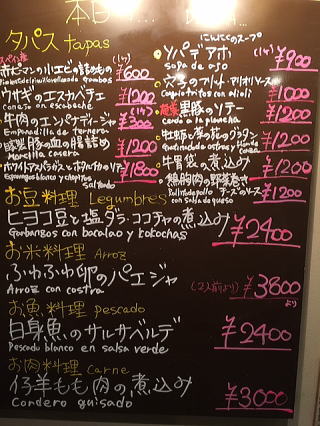 タパス tapas
スペイン産 (1ケ)
赤ピーマンの小エビの詰めもの ¥600
ウサギのエスカベチェ ¥1200
Conejo en escabeche
(1ケ)
牛肉のエンパナディージャ ¥300
Empanadilla de ternera
豚の血の腸詰め ¥1200
Morcilla casera
ホワイトアスパラガスとポルチーニのソテー ¥1800
salteado
にんにくのスープ
ソパデアホ (1ケ) ¥900
Sopa de ajo
穴子のフリット・アリオリソース ¥1000
con alioli
黒豚のソテー ¥1200
a la plancha
牡蛎と菜の花のグラタン ¥1200
牛胃袋の煮込み ¥1200
鶏胸肉の野菜巻き チーズのソース ¥1200
con salsa de queso
お豆料理 Legumbres
ヒヨコ豆と塩ダラ・ココチャの煮込み
Garbanzos con bacalao y kokochas ¥2400
お米料理 Arroz
ふわふわ卵のパエジャ
Arroz con costra (2人前より) ¥3800より
お魚料理 pescado
白身魚のサルサベルデ ¥2400
Pescado blanco en salsa verde
お肉料理 Carne
仔羊もも肉の煮込み ¥3000
Cordero guisado